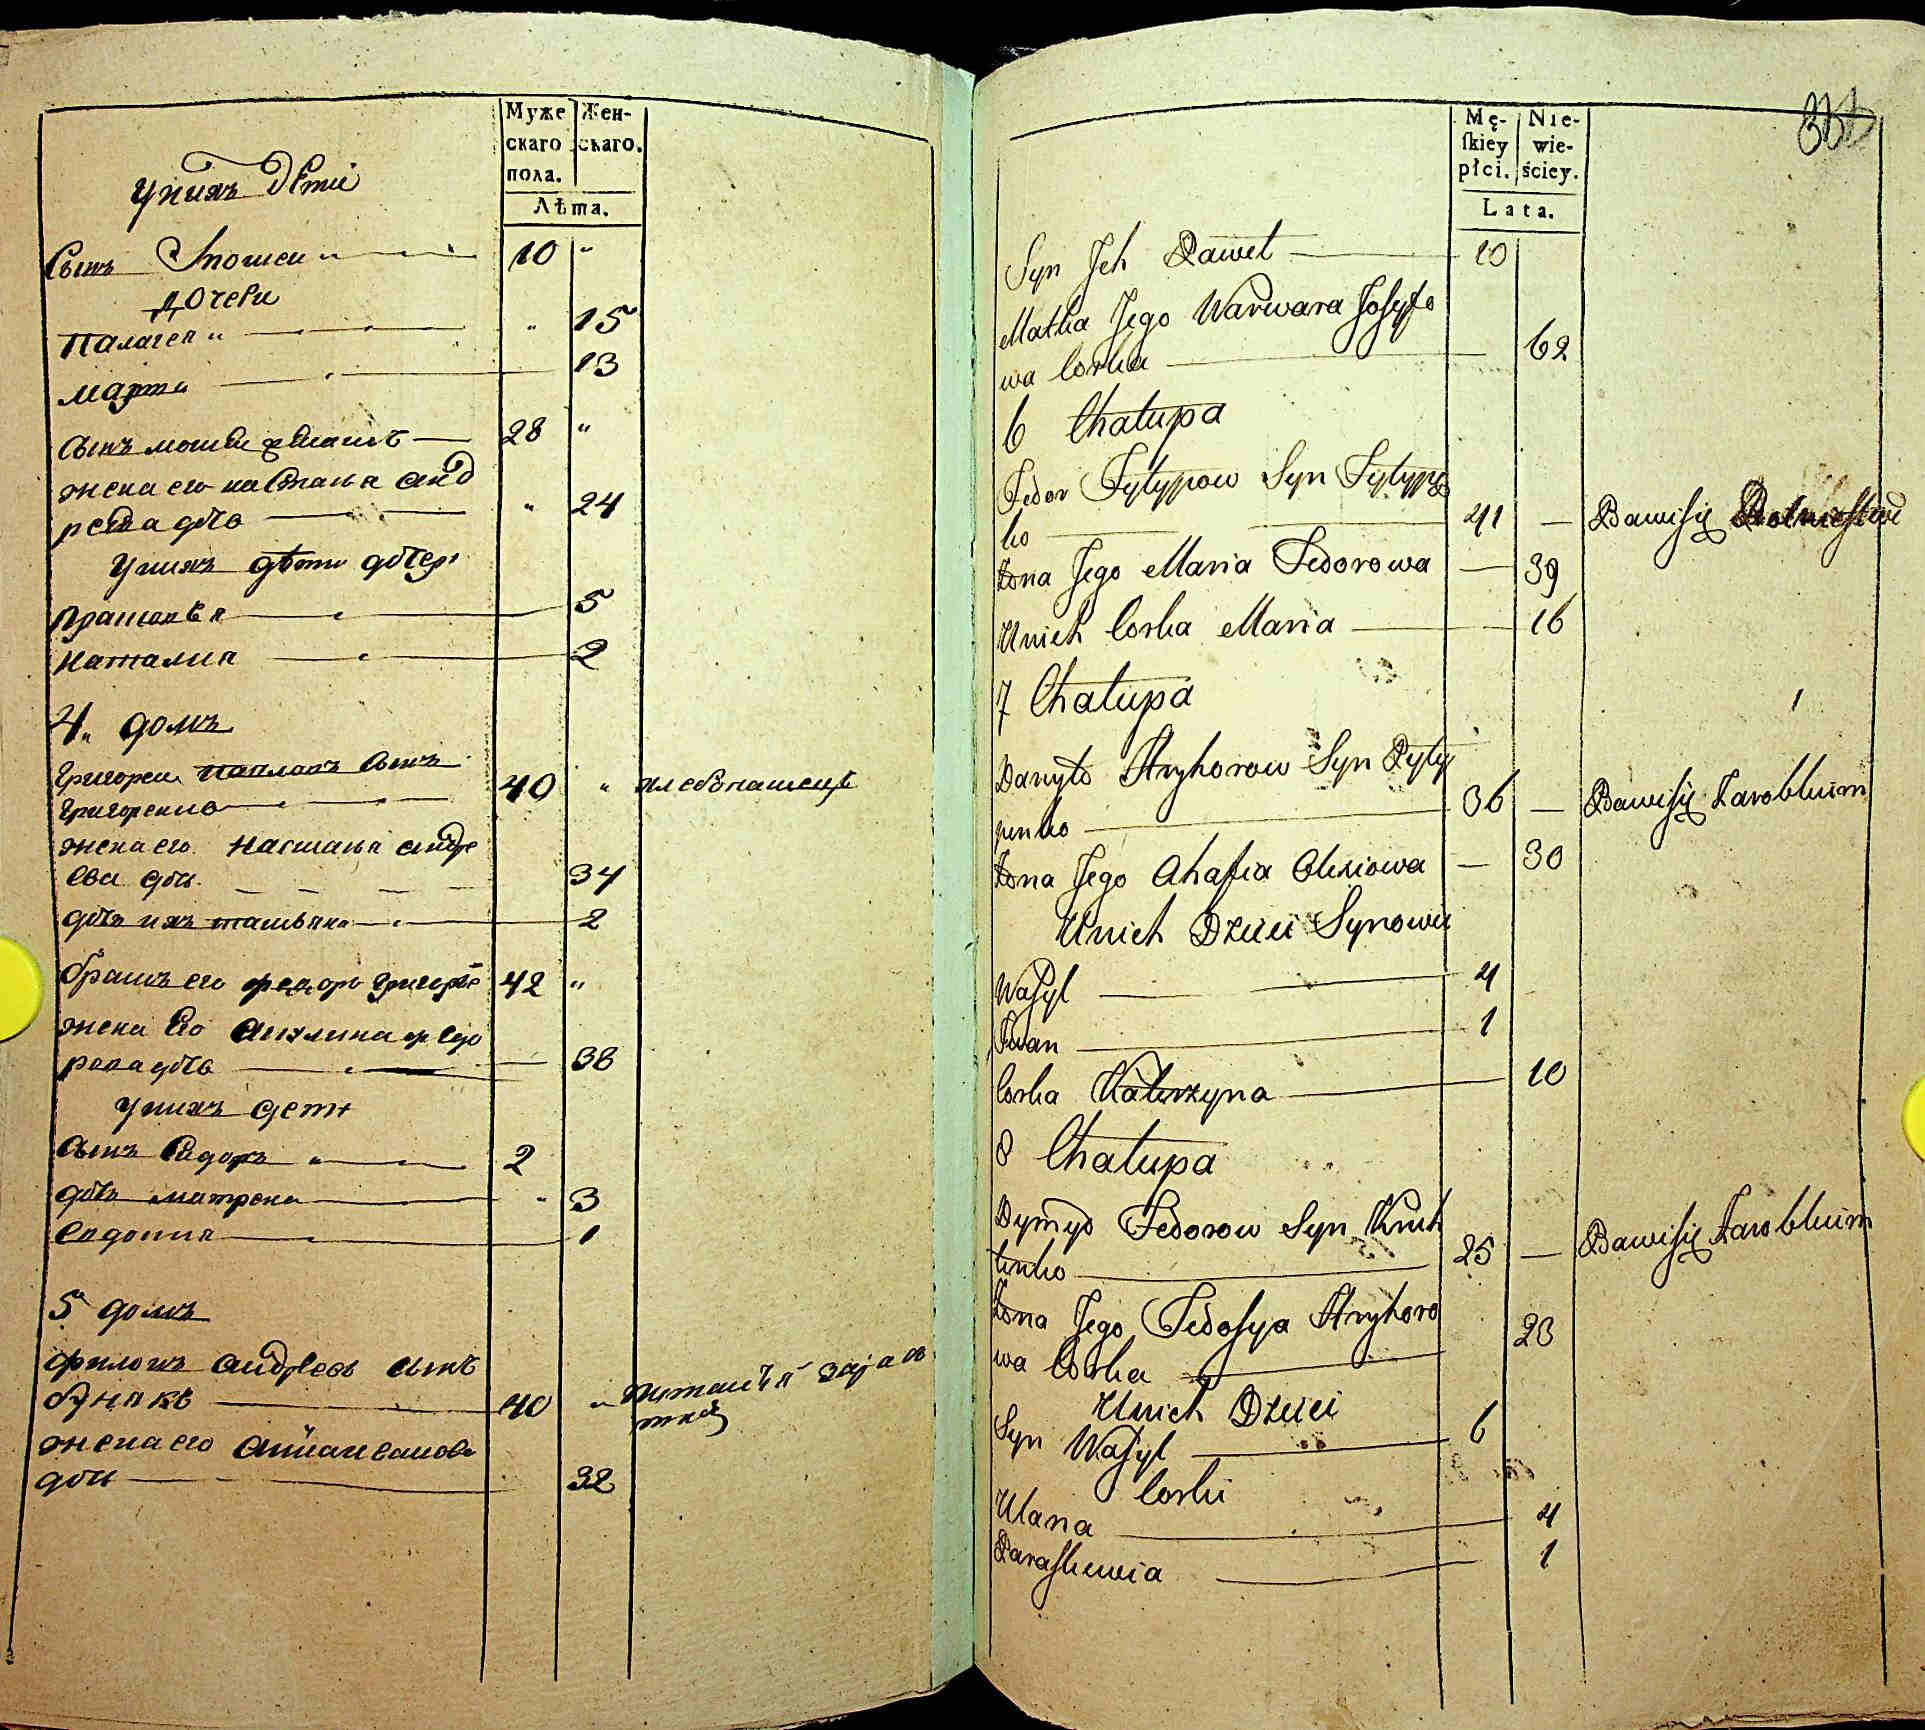 Муже
скаго
пола.
Жен-
скаго.
Лѣта.
Уних дѣти
Сынъ 10 "
дочери
Палагея " 15
Марта 13
Сынъ 28 "
жена его настасья анд
реева дочь " 24
Уних дѣти дочери
Прасковья 5
Наталия 2
4. домъ
Григорей Павловъ сынъ
Григоренко 40 " хлебопашецъ
жена его настасья андре
ева дочь 34
дочь их татьяна 2
братъ его федоръ григорье 42 "
жена его акулина федо
рова дочь 38
Уних дети
сынъ Сидоръ " 2
дочь матрена " 3
Евдокия 1
5 домъ
филипъ андреевъ сынъ
бунякъ 40 "
жена его
дочь 32
Mę-
ſkiey
płci.
Nie-
wie-
ściey.
Lata.
Syn Jch Paweł 10
Matka Jego Warwara Josyfo
wa Corka 62
6 Chałupa
Fedor Fylypow Syn Fylypę
ko 41 — Bawisię Rolnictwē
Żona Jego Maria Fedorowa — 39
Unich Corka Maria 16
7 Chałupa
Danyło Hryhorow Syn Pyły
penko 36 — Bawisię Zarobkiim
Żona Jego Ahafia Olexiowa — 30
Unich Dzieci Synowie
Wasyl 4
Jwan 1
Corka Katerzyna 10
8 Chałupa
Dymyd Fedorow Syn Kruk
tenko 25 — Bawisię Zarobkiim
Żona Jego Fedosya Hryhoro
wa Corka 23
Unich Dzieci
Syn Wasyl 6
Corki
Ulana 4
Paraskiewia 1